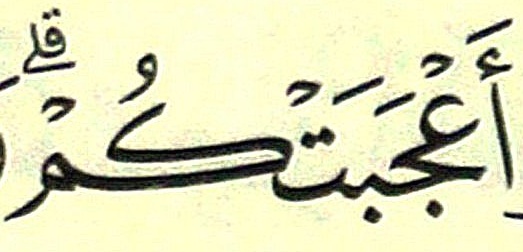 أَعْجَبَتْكُمْ ۗ